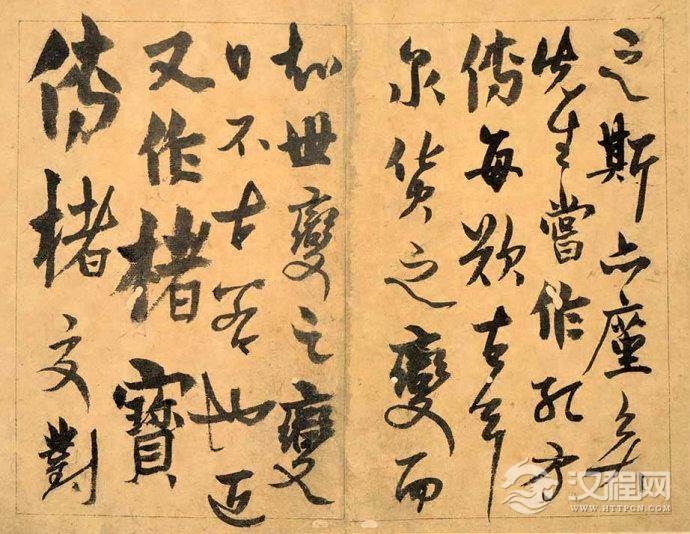 之斯亦座
先生嘗作孔方
傳每歎古今
泉貨之變而
知世變之變
日不古若也近
又作楮寶
傳楮文對
汉程网
WWW.HTTPCN.COM